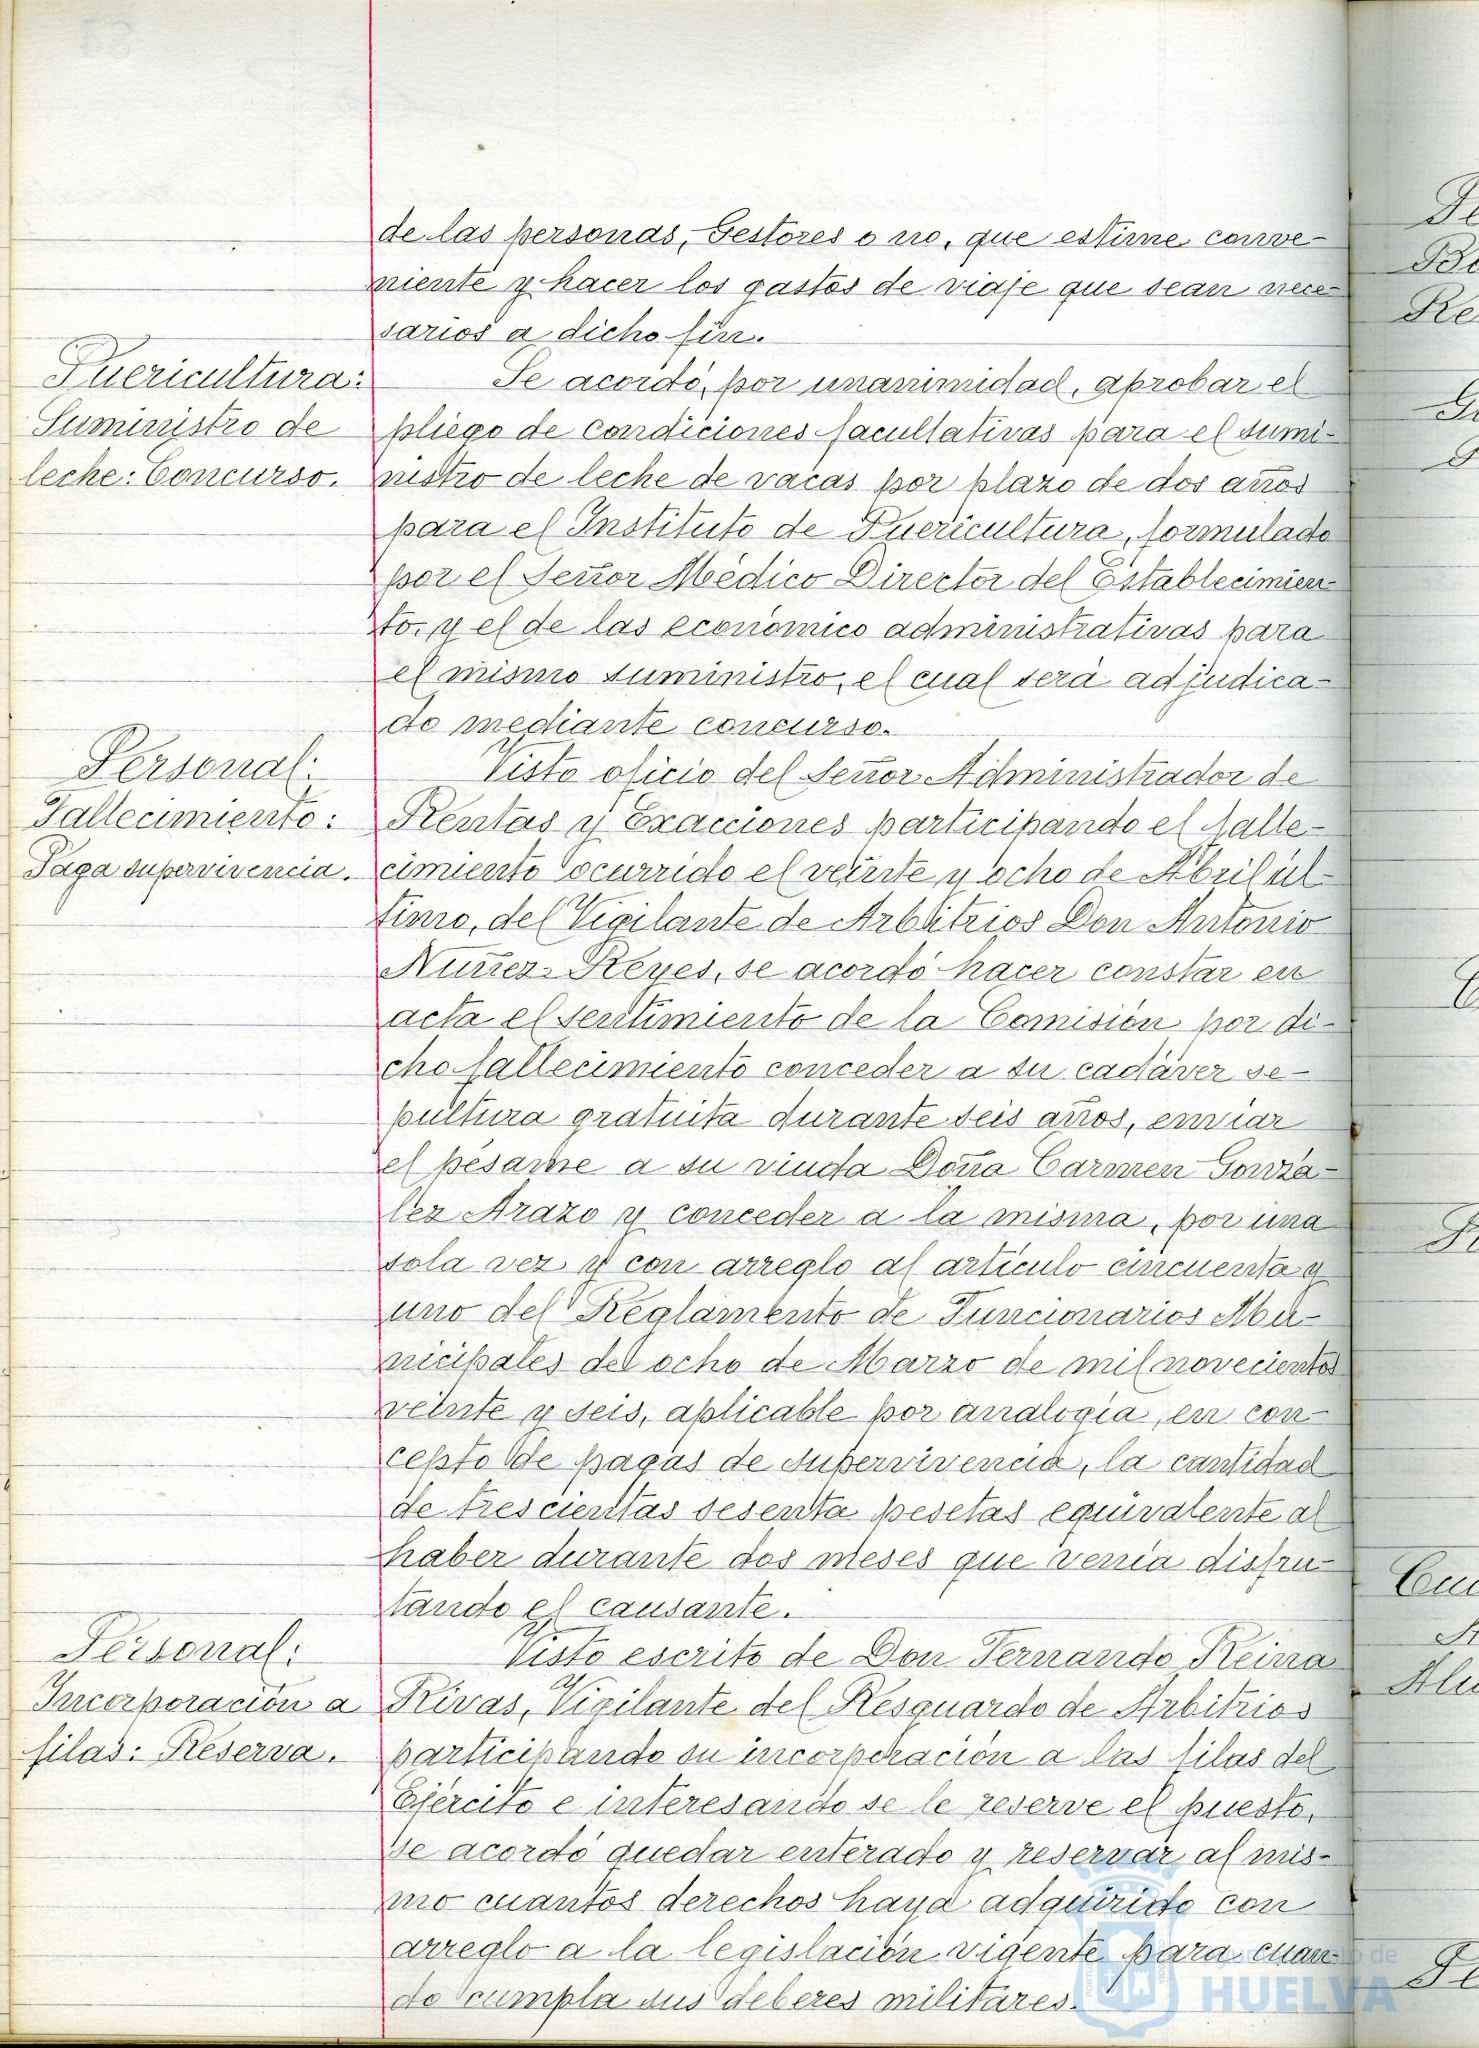 de las personas, Gestores o no, que estime conve-
niente y hacer los gastos de viaje que sean nece-
sarios a dicho fin.
Puericultura:
Suministro de
leche: Concurso.
Se acordó, por unanimidad, aprobar el
pliego de condiciones facultativas para el sumi-
nistro de leche de vacas por plazo de dos años
para el Instituto de Puericultura, formulado
por el Señor Médico Director del Establecimien-
to, y el de las económico administrativas para
el mismo suministro, el cual será adjudica-
do mediante concurso.
Personal:
Fallecimiento:
Paga supervivencia.
Visto oficio del Señor Administrador de
Rentas y Exacciones participando el falle-
cimiento ocurrido el veinte y ocho de Abril úl-
timo, del Vigilante de Arbitrios Don Antonio
Nuñez Reyes, se acordó hacer constar en
acta el sentimiento de la Comisión por di-
cho fallecimiento conceder a su cadáver se-
pultura gratuita durante seis años, enviar
el pésame a su viuda Doña Carmen Gonzá-
lez Arazo y conceder a la misma, por una
sola vez y con arreglo al artículo cincuenta y
uno del Reglamento de Funcionarios Mu-
nicipales del ocho de Marzo de mil novecientos
veinte y seis, aplicable por analogía, en con-
cepto de pagas de supervivencia, la cantidad
de trescientas sesenta pesetas equivalente al
haber durante dos meses que venía disfru-
tando el causante.
Personal:
Incorporación a
filas: Reserva.
Visto escrito de Don Fernando Reina
Rivas, Vigilante del Resguardo de Arbitrios
participando su incorporación a las filas del
Ejército e interesando se le reserve el puesto,
se acordó quedar enterado y reservar al mis-
mo cuantos derechos haya adquirido con
arreglo a la legislación vigente para cuan-
do cumpla sus deberes militares.
HUELVA